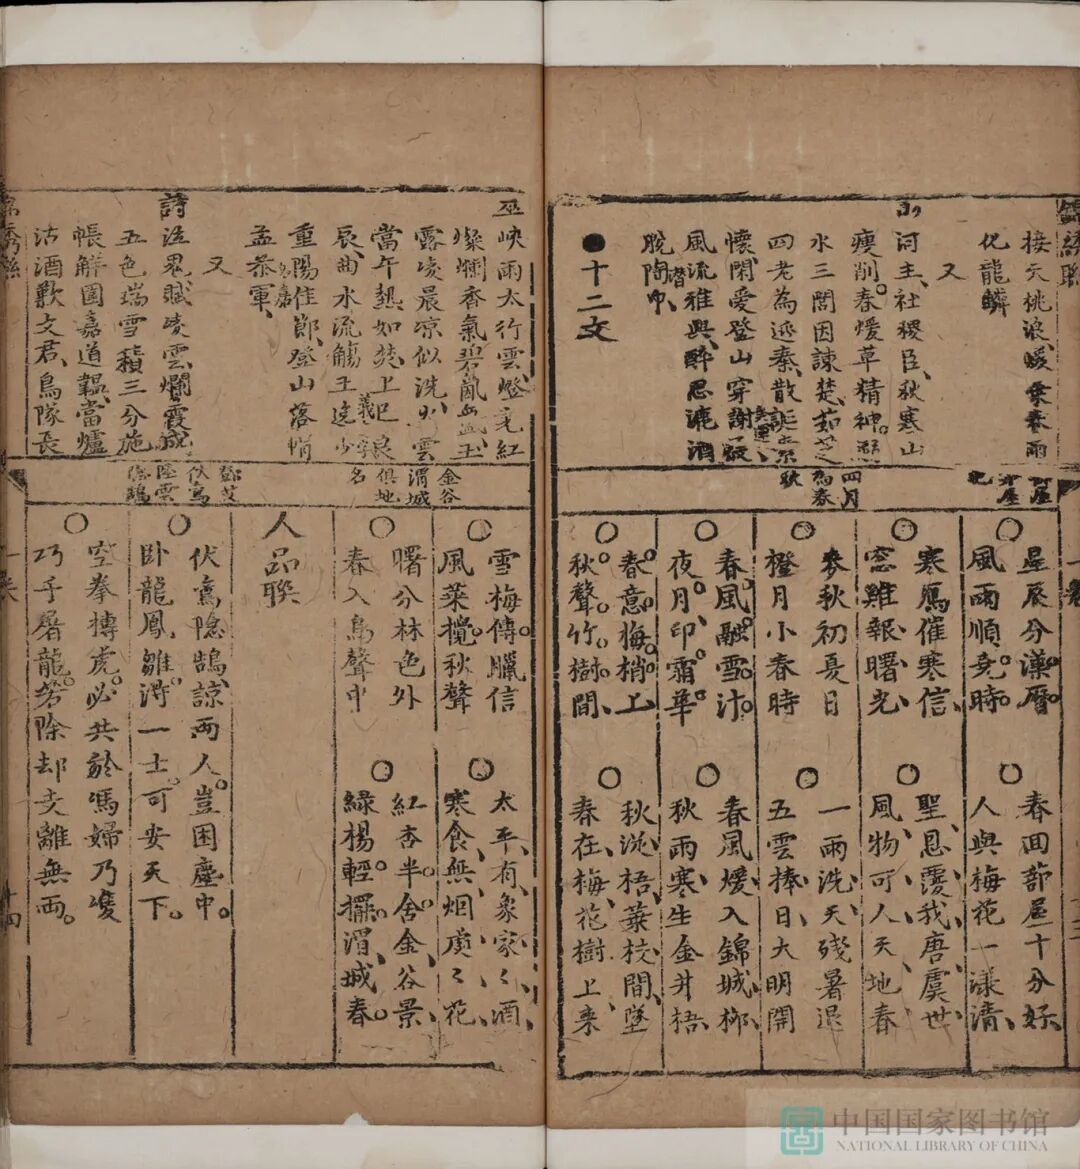 接天桃浪暖乘春雨
化龍鱗
又
山河主、社稷臣、秋寒山
瘦削。春煖草精神。
水三閭因諫楚、茹芝
四老為逃秦、散誕
懷閑愛登山穿謝屐
風流雅興醉思漉酒
脫陶潛巾、
●十二文
四月為麥秋
星辰分漢曆。
風雨順堯時。
寒鴈催寒信、
窓雞報曙光、
麥秋初夏日
橙月小春時
春風融雪汁。
夜月印霜華
春意梅梢上
秋聲竹樹間、
春回蔀屋十分好、
人與梅花一漾清、
聖恩覆我唐虞世
風物可人天地春
一雨洗天殘暑退
五雲捧日大明開
春風煖入錦城柳
秋雨寒生金井梧
秋從梧葉枝間墜
春在梅花樹上来
巫峽雨太行雲、燈毛紅
燦爛香氣碧氤氳、玉
露凌晨凉似洗、火雲
當午熱如焚、上巳良
辰、曲水流觴王逸少
羲之字
重陽佳節、登山落帽
孟參軍、
孟嘉
又
詩泣鬼賦凌雲、爛霞成
五色、瑞雪積三分、施
帳解圍嘉道韞、當爐
沽酒歎文君、鳥隊長
金谷
渭城
俱地
名
鄧艾
伏鸞
陸雲
隱鵠
雪梅傳臘信
風葉攪秋聲
曙分林色外
春入鳥聲中
太平有象家〻酒、
寒食無烟處〻花、
紅杏半舍金谷景
綠楊輕擺渭城春
人品聯
伏鸞隱鵠諒兩人。豈困塵中。
卧龍鳳雛得一士。可安天下。
空拳搏虎。必共於馮婦乃㕙
巧手屠龍。若除却支離無兩。